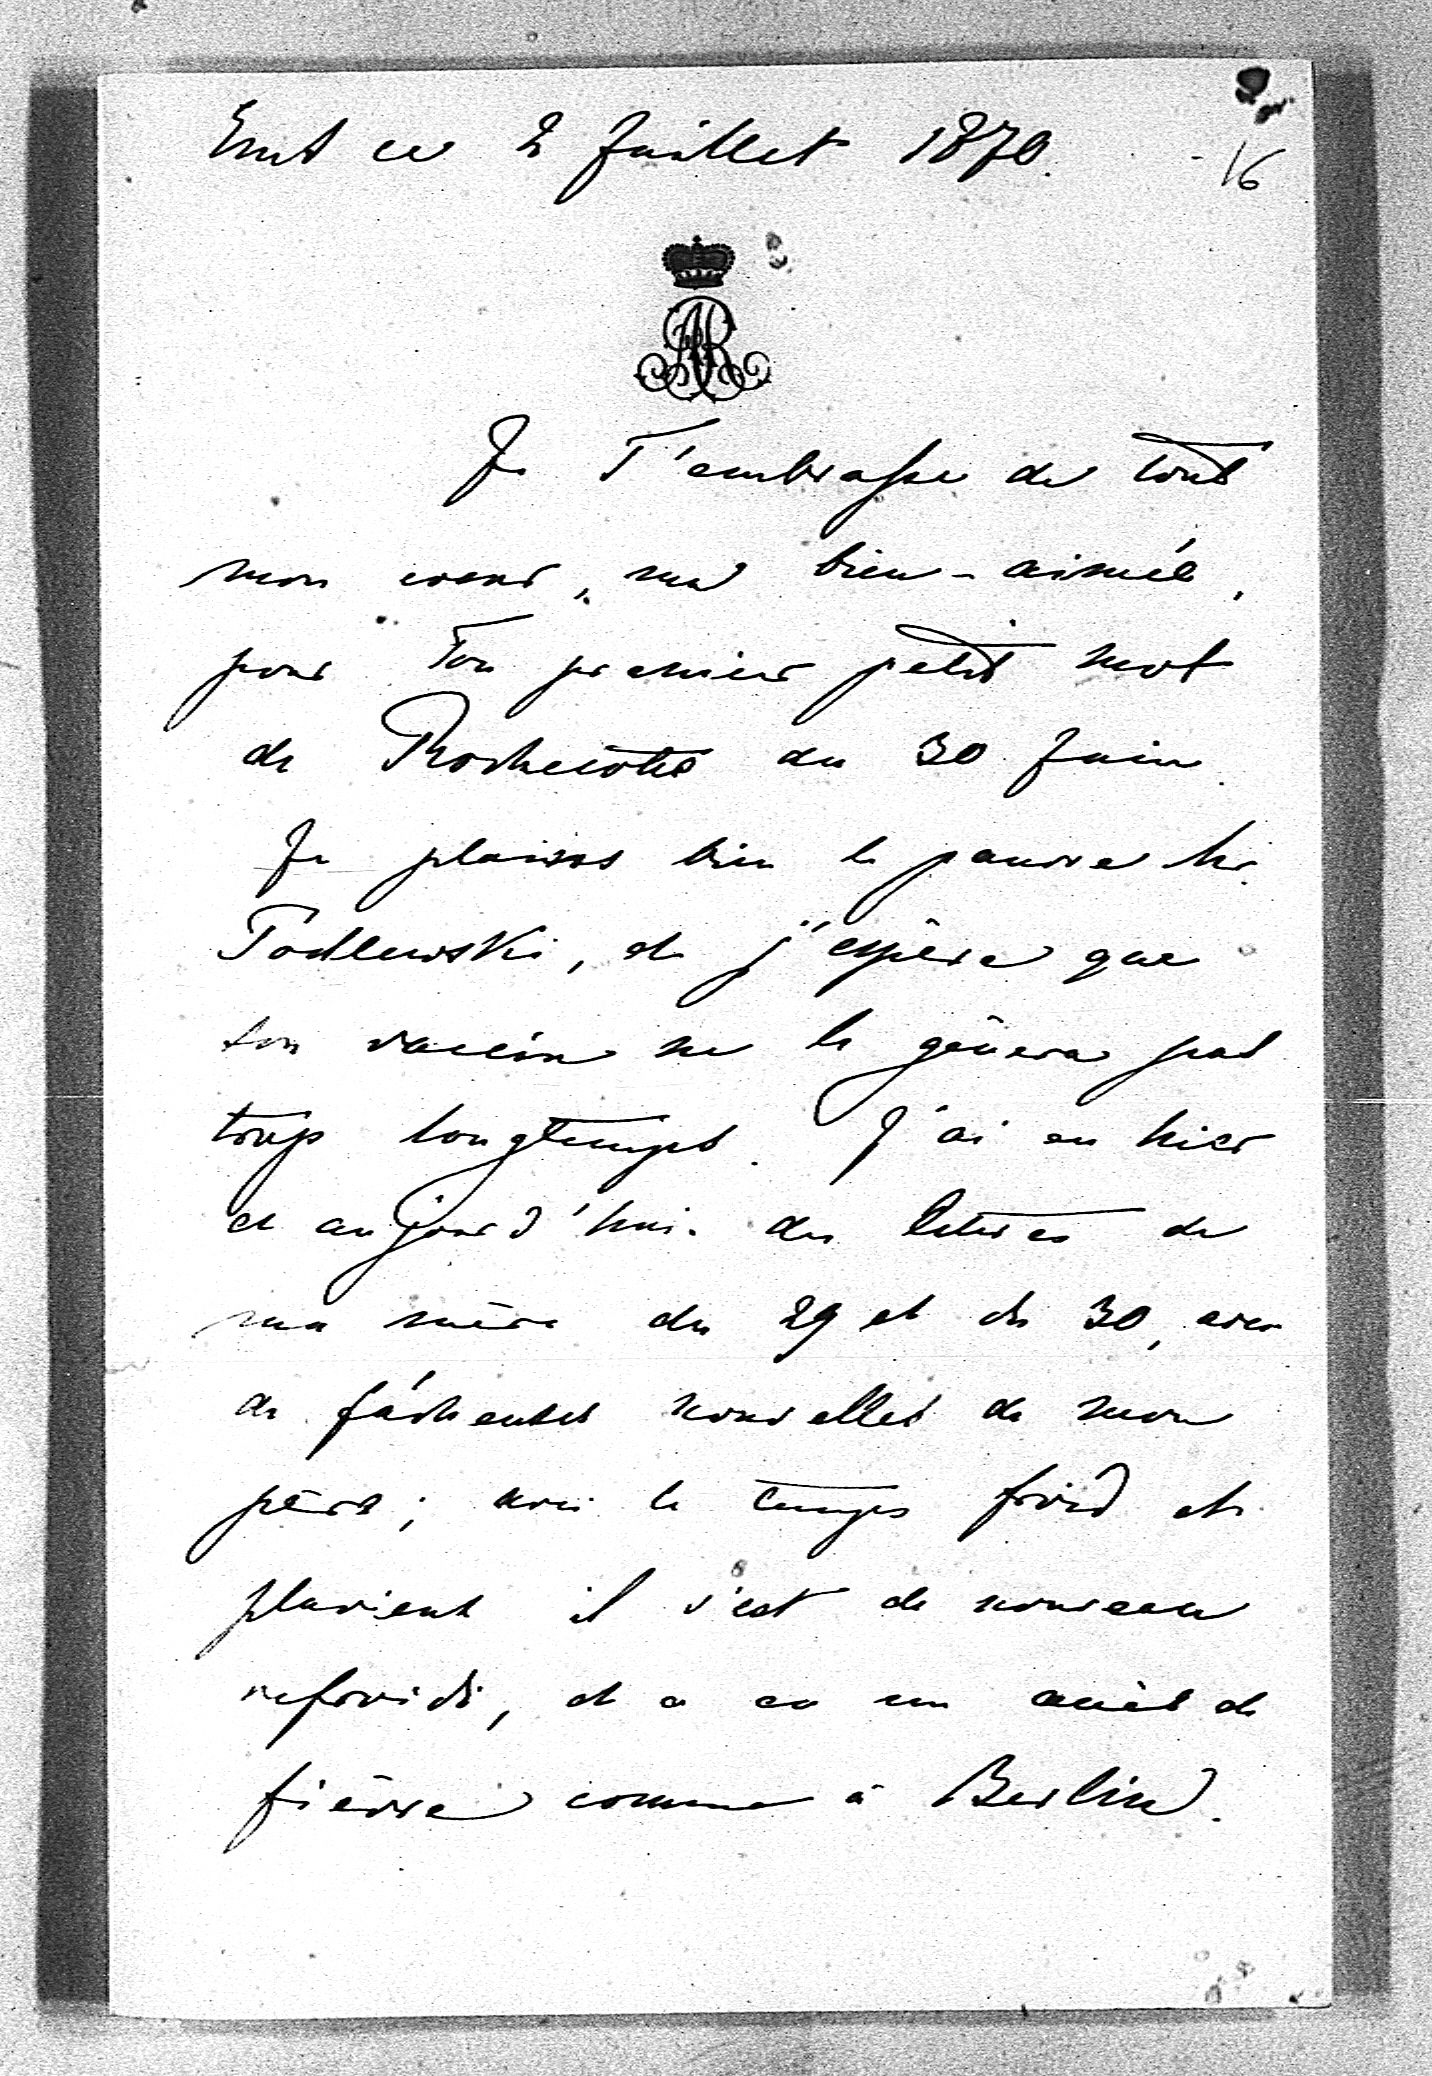 Ems ce 2 Juillet 1870.
16
AR
Je T'embrasse de tout
mon coeur, ma bien-aimée,
pour Ton premier petit mot
de Rochecotte du 30 Juin.
Je plains bien le pauvre Mr.
Podlewski, et j'espère que
son vaccin ne le gênera pas
trop longtemps. J'ai eu hier
et aujourd'hui des lettres de
ma mère du 29 et du 30, avec
de fâcheuses nouvelles de mon
père; avec le temps froid et
pluvieux il s'est de nouveau
refroidi, et a eu un accès de
fièvre comme à Berlin.